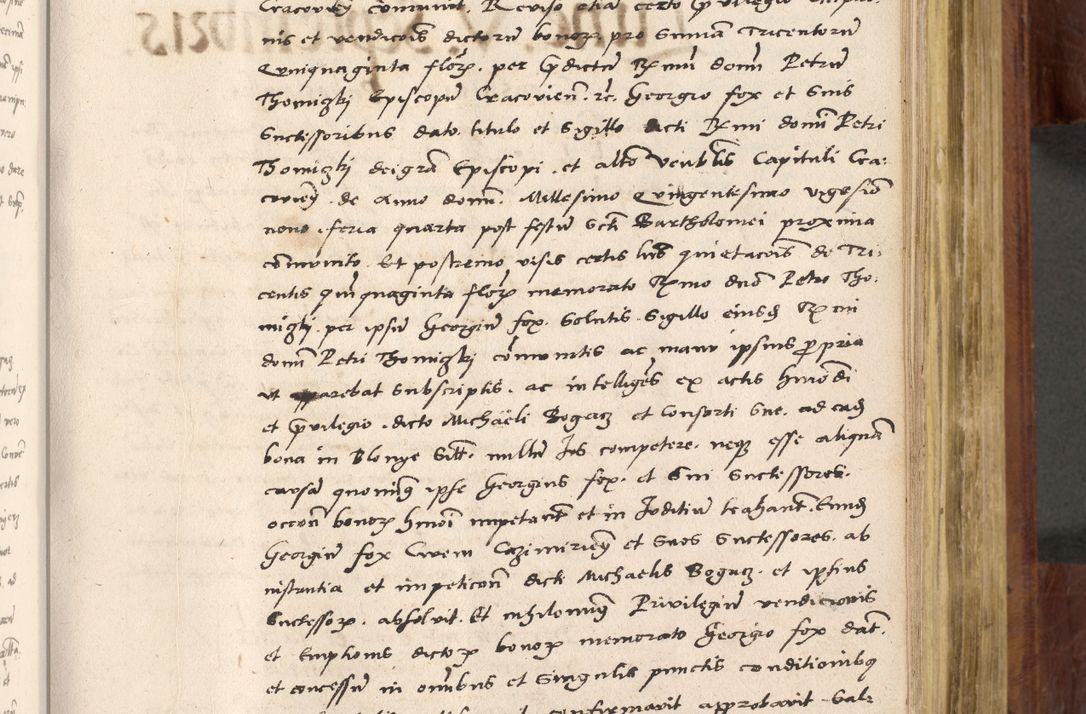 Cracovień cōmunit. Reviso etiā certo privilegio
nis et vendicois dictorū bonorz pro Summa Tricentorū
Quinquaginta florz. per prdictū Rxmū domū Petrū
Thomiczki Episcopū Cracovień. rc. Georgio fox et Suis
Successoribus dato. titulo et Sigillo dicti Rxmi domī Petri
Thomiczki dei grā Episcopi. et alto Venēblis Capituli Cra:
covień. de Anno domi. Millesimo Quingentesimo vigesio
nono. feria quarta post festū Scti Bartholomei proxima
cōmunito. Et postremo visis certis lris quietacois de Tri:
centis quinquaginta florz memorato Rxmo dno Petro Tho:
miczki. per ipsū Georgiū fox. Solutis. Sigillo eiusdē Rxmi
domi Petri Thomiczki cōmunitis ac manu ipsius propria
ut apparebat Subscriptis. ac intelligēs ex actis hmōdi
et privilegio. dicto Michaëli Bogacz et Consorti Sue. ad eadē
bona in Blonye Sitt. nullū Jus competere. neque esse aliquā
causā quominq ipse Georgius fox. et Sui Successores.
occōn bonorz hmōi impetant et in Juditiū trahant. Eundē
Georgiū fox Civem Cazimirień et Suos Successores. ab
instantia et impeticōn dicti Michaelis Bogacz. et ipsius
Successorz. absolvit. Et nihilominq Privilegiū vendicionis
et Emptionis dictorz bonorz memorato Georgio fox dāt.
et concessū in omībus et Singulis punctis conditionibq
confirmavit approbavit Val: